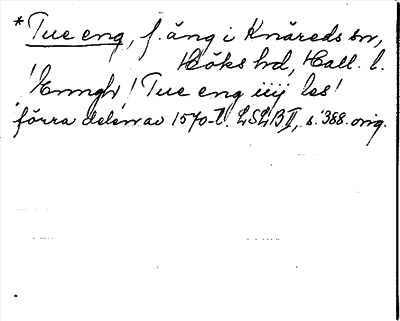 *Tue eng, f. äng i Knäreds sn,
Höks hd, Hall. l.
! Enngh ! Tue eng iiij les!
förra delen av 1570-t. LSLB II, s. 388. orig.